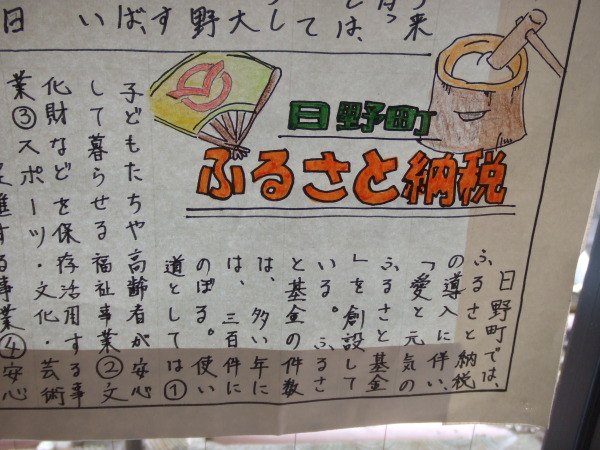 日野町
ふるさと納税
日野町では、
ふるさと納税
の導入に伴い、
「愛と元気の
ふるさと基金
」を創設して
いる。ふるさ
と基金の件数
は、多い年に
は、三百件に
のぼる。使い
道としては①
子どもたちや高齢者が安心
して暮らせる福祉事業②文
化財などを保存活用する事
業③スポーツ・文化・芸術
進する事業④安心